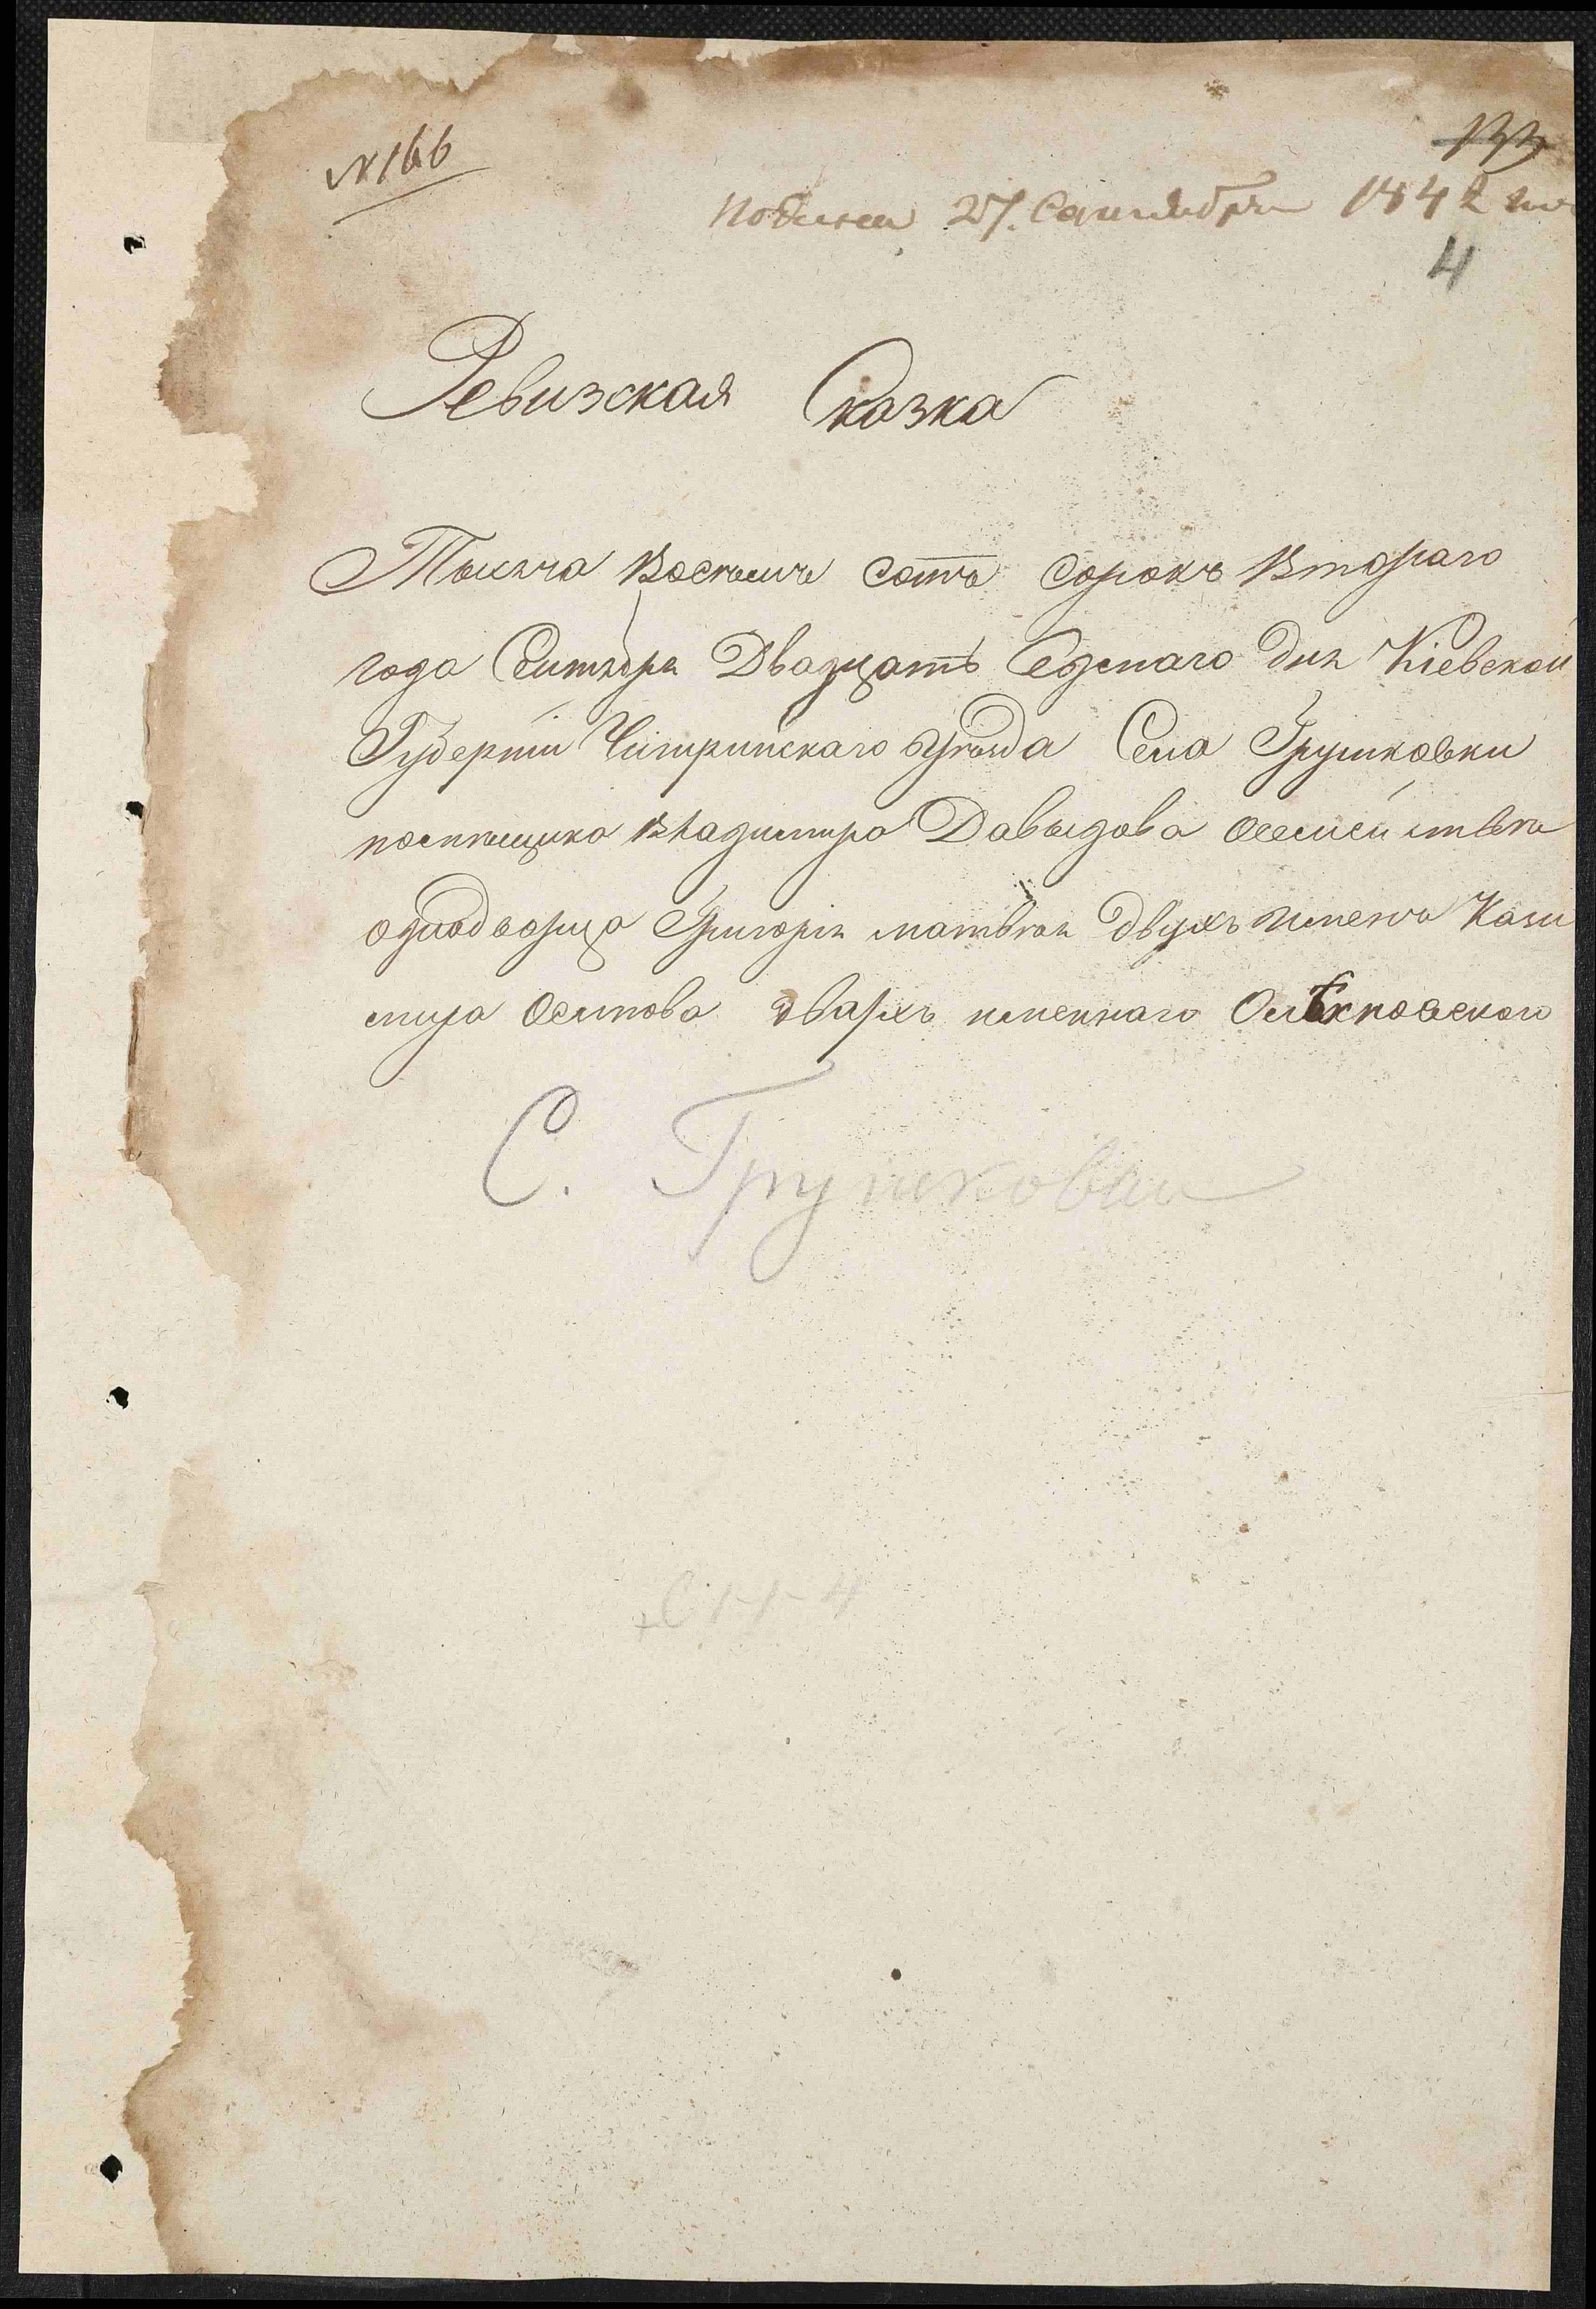 № 166
133
Подана 27. Сентября 1842 го
4
Ревизская Сказка
Тысяча восемь сотъ сорокъ втораго
года Сентября Двадцать Седмаго дня Кіевской
Губерніи Чигиринскаго уѣзда Села Грушковки
помѣщика Владимира Давыдова осемействѣ
однодворца Григорія матвѣя двухъ именъ Кази
мира Осипова двухъ именнаго
С. Грушковки